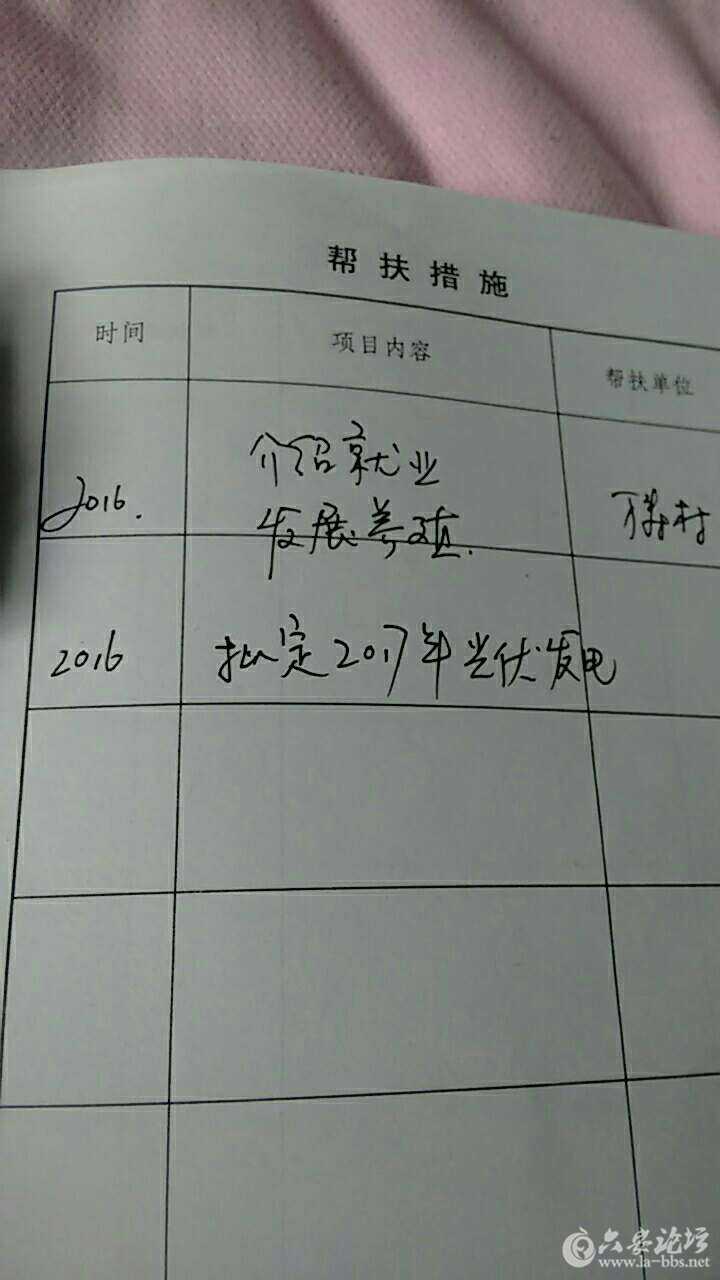 帮扶措施
时间 项目内容 帮扶单位
介绍就业
2016. 发展养殖. 村
2016 拟定2017年光伏发电
六安论坛
www.la-bbs.net